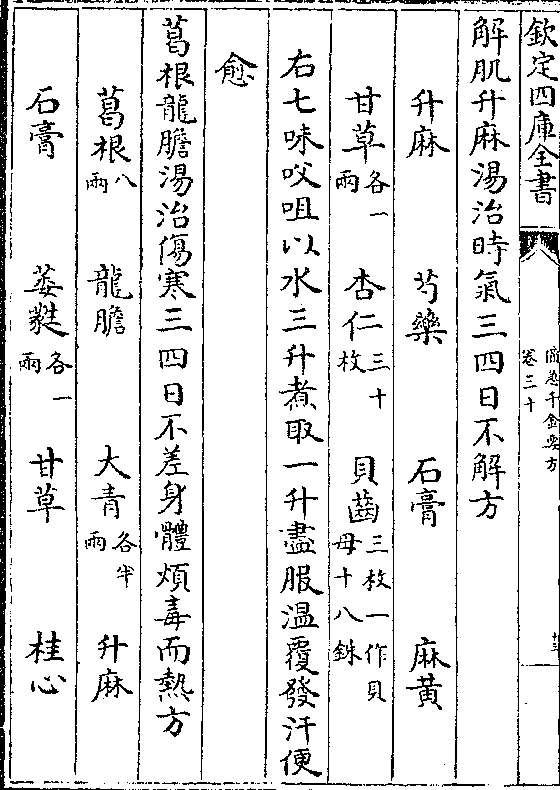 欽定四庫全書
備急千金要方
卷三十
解肌升麻湯治時氣三四日不解方
升麻 芍藥 石膏 麻黃
甘草各一兩 杏仁三十枚 貝齒三枚一作貝母十八銖
右七味㕮咀以水三升煮取一升盡服温覆發汗便
愈
葛根龍膽湯治傷寒三四日不差身體煩毒而熱方
葛根八兩 龍膽 大青各半兩 升麻
石膏 葳蕤各一兩 甘草 桂心